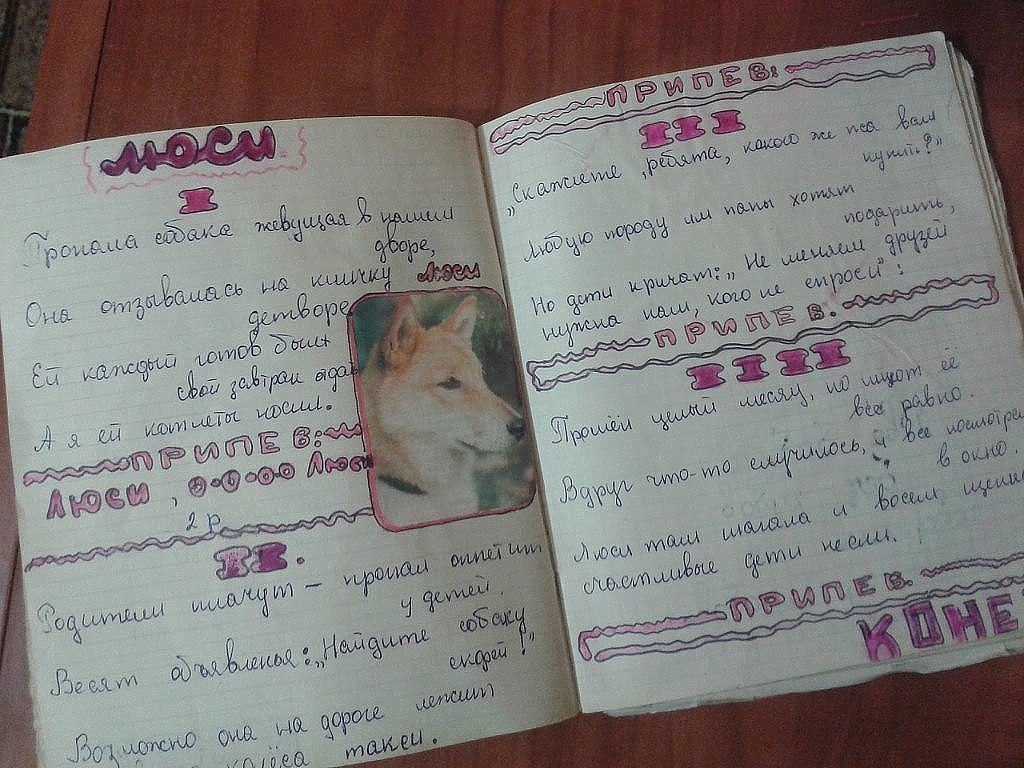 ЛЮСИ
I
Пропала собака жевущая в нашем
дворе,
Она отзывалась на кличку Люси
детворе
Ей каждый готов был
свой завтрак отдать
А я ей котлеты носил.
ПРИПЕВ:
Люси, о-о-оо Люси
2 р
II.
Родители плачут – пропал аппетит
у детей.
Весят объявленья: „Найдите собаку
скорей!"
Возможно она на дороге лежит
колёса такси.
ПРИПЕВ:
III
„Скажите, ребята, какого же пса вам
купить?"
Любую породу им папы хотят
подарить,
Но дети кричат: „Не меняем друзей
нужна нам, кого не спроси":
ПРИПЕВ.
IIII
Прошёл целый месяц, но ищют её
всё равно.
Вдруг что-то случилось, и все посмотрел
в окно.
Люси там шагала и восем щенков
счастливые дети несли.
ПРИПЕВ.
КОНЕ